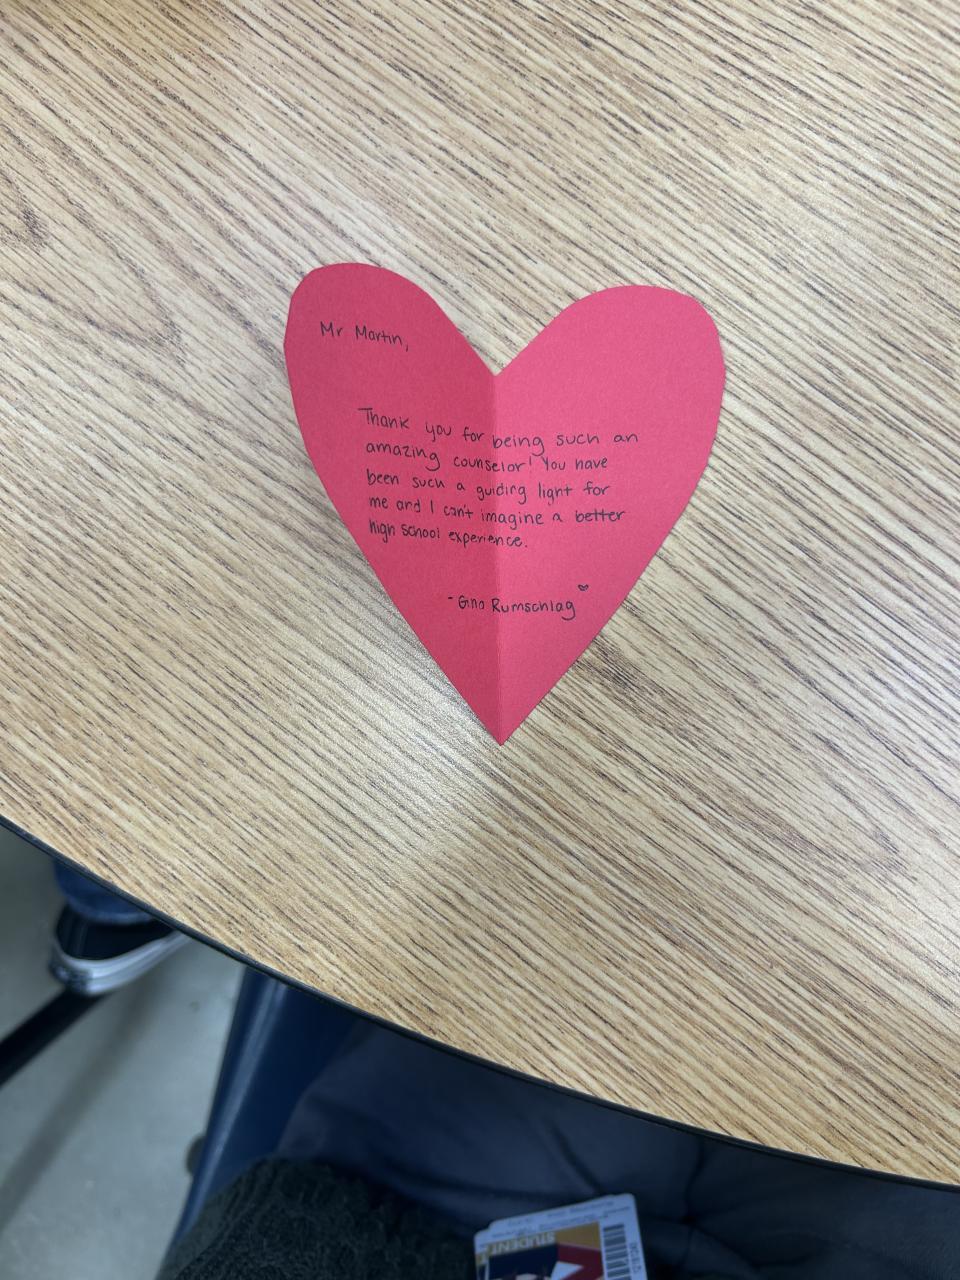 Mr Martin,
Thank you for being such an
amazing counselor! You have
been such a guiding light for
me and I can't imagine a better
high school experience.
-Gina Rumschlag
STUDENT